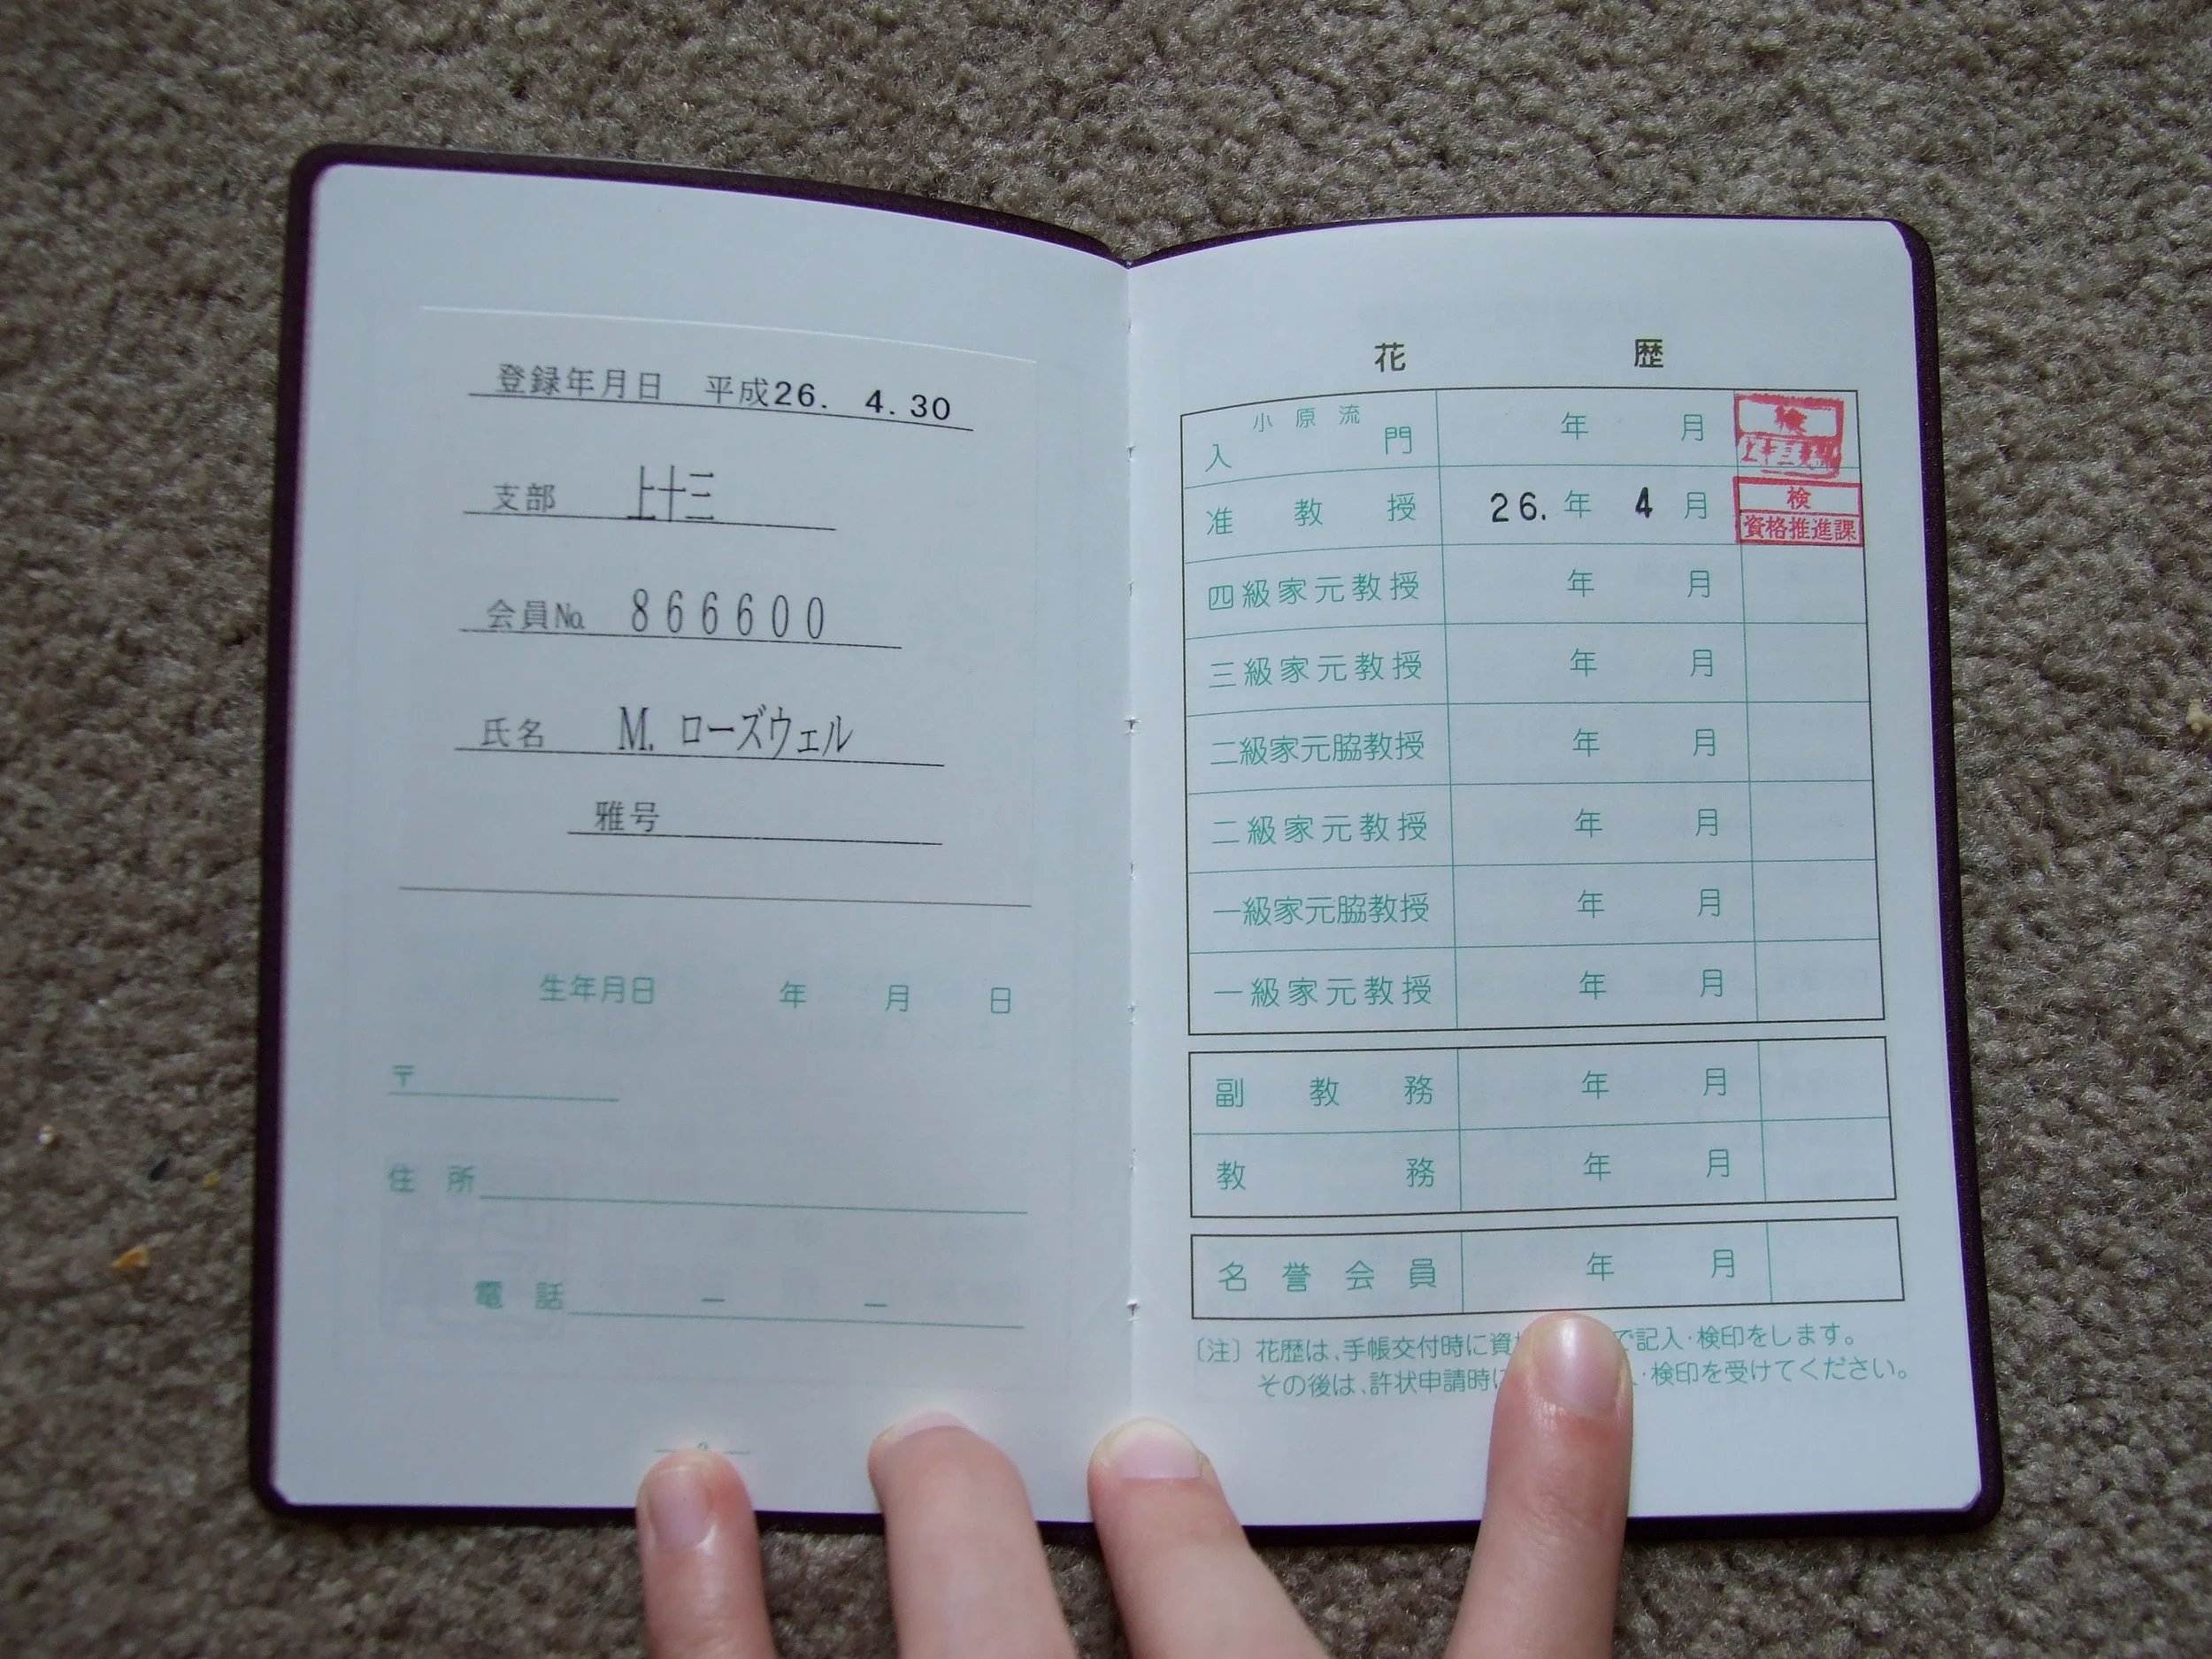 登録年月日 平成26. 4.30
支部 上十三
会員No. 866600
氏名 M. ローズウェル
雅号
生年月日 年 月 日
〒
住所
電話 — —
花歴
小原流
入門 年 月 検
准教授 26.年 4月 検
資格推進課
四級家元教授 年 月
三級家元教授 年 月
二級家元脇教授 年 月
二級家元教授 年 月
一級家元脇教授 年 月
一級家元教授 年 月
副教務 年 月
教務 年 月
名誉会員 年 月
〔注〕花歴は、手帳交付時に資 で記入・検印をします。
その後は、許状申請時に ・検印を受けてください。